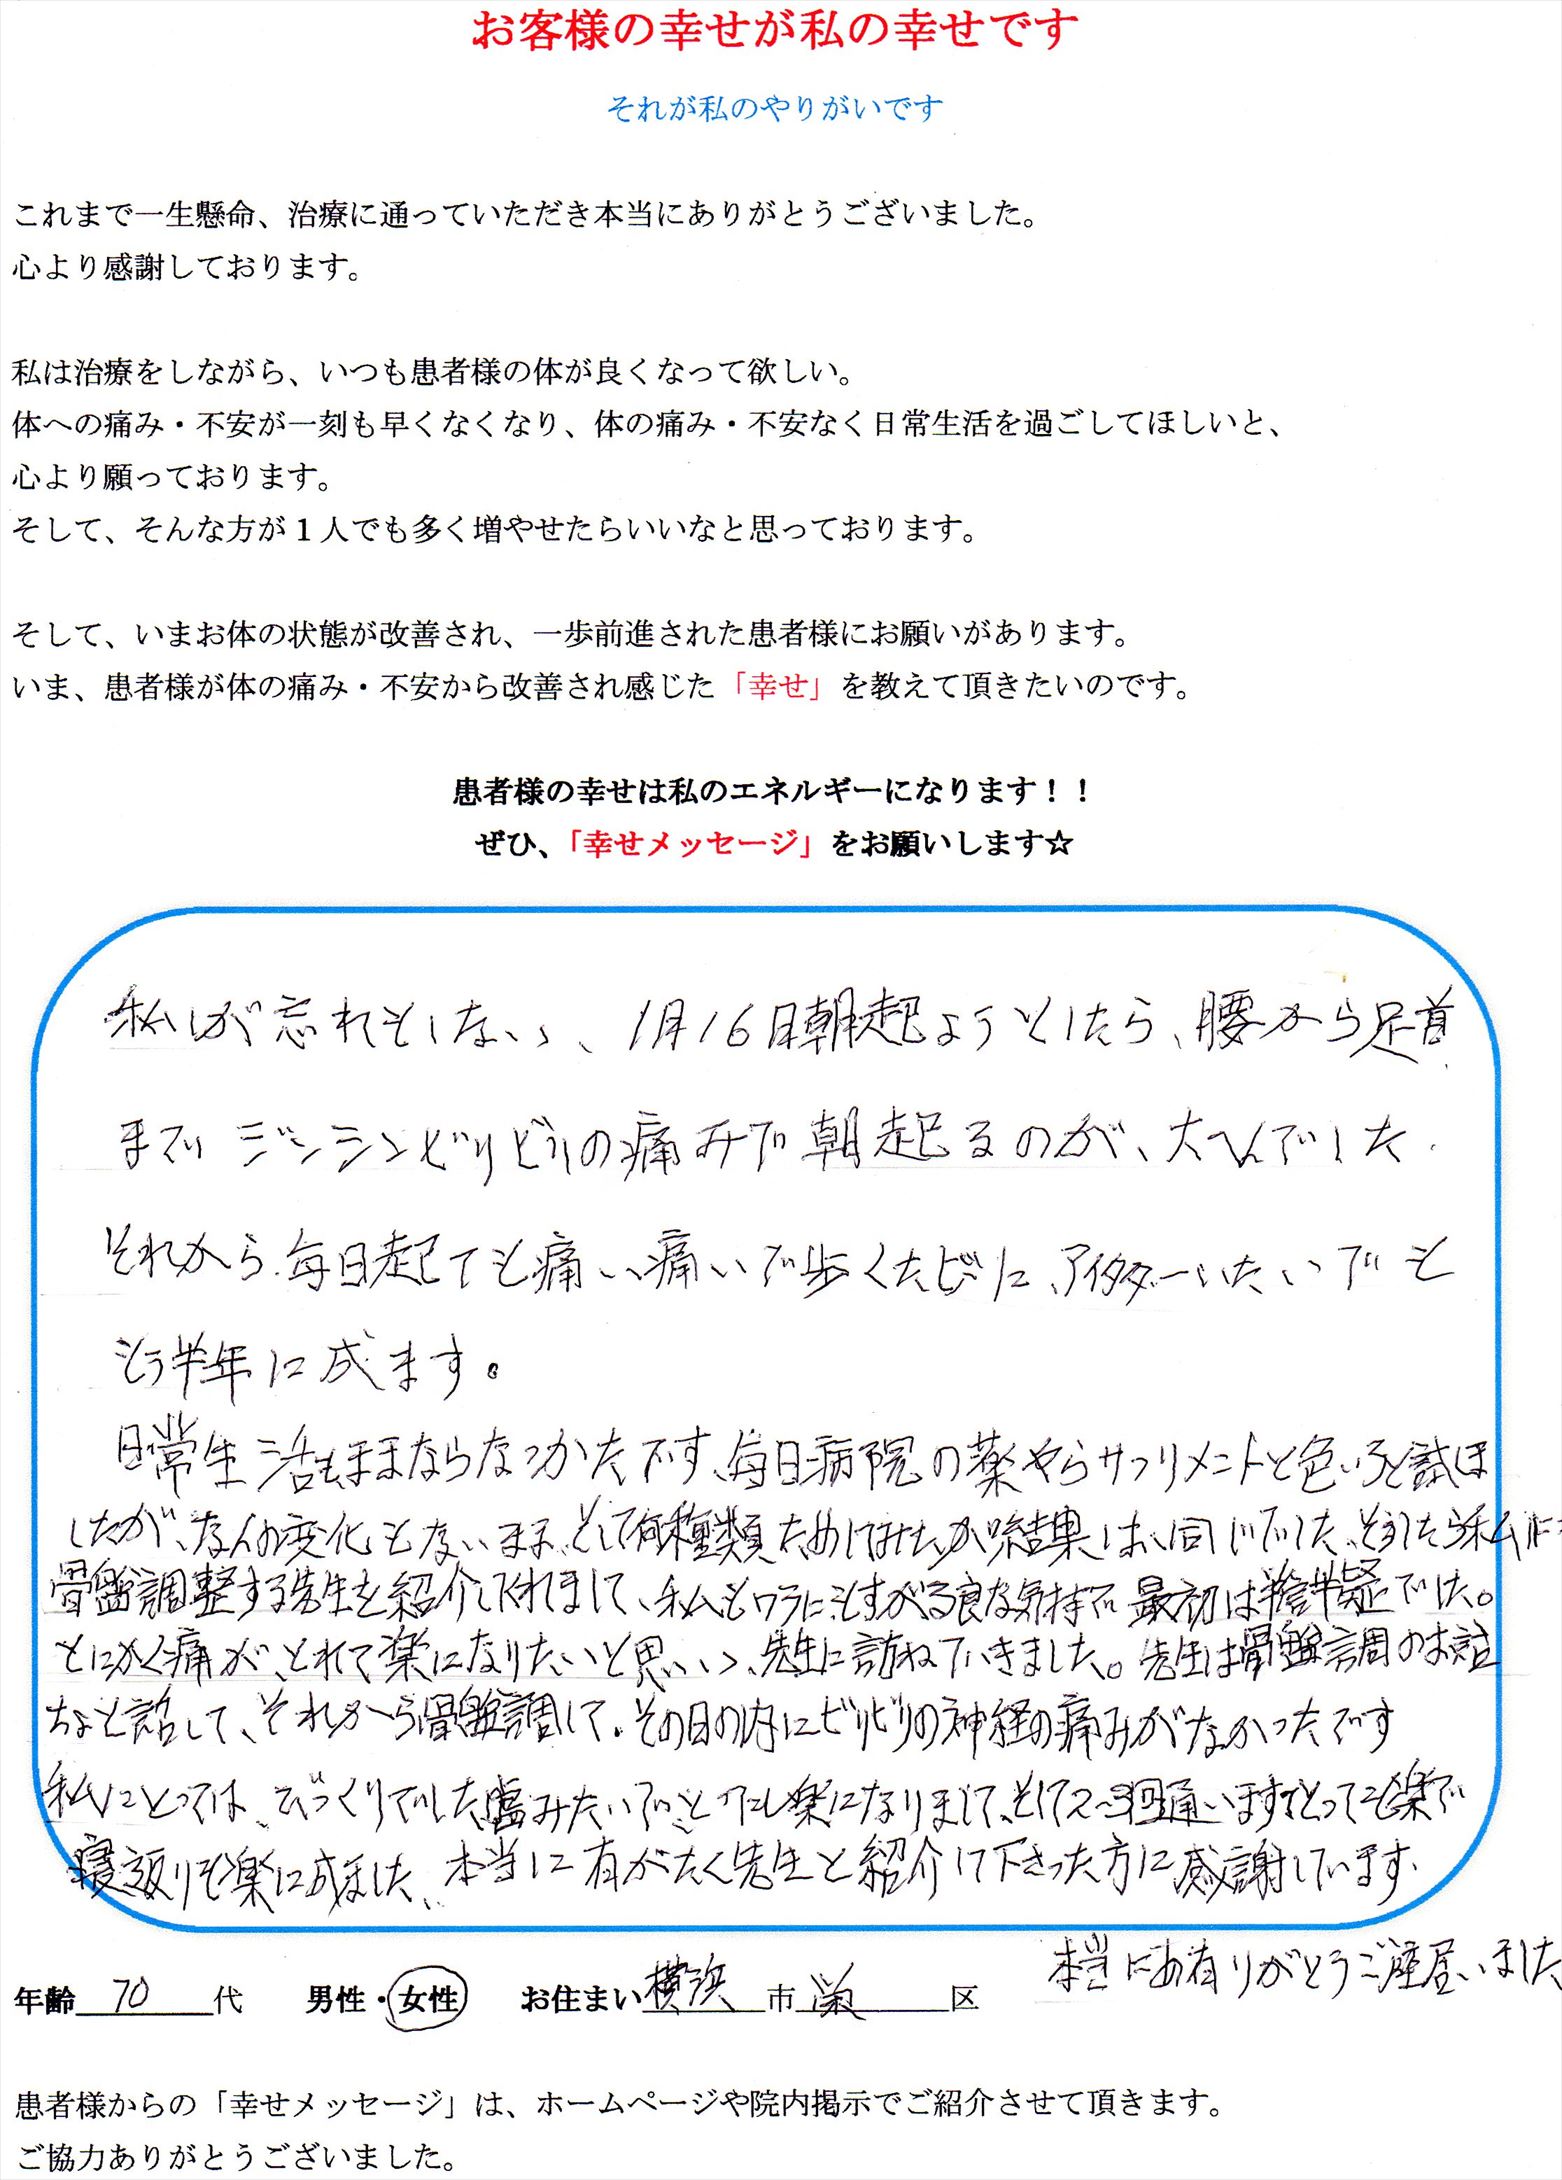 お客様の幸せが私の幸せです
それが私のやりがいです
これまで一生懸命、治療に通っていただき本当にありがとうございました。
心より感謝しております。
私は治療をしながら、いつも患者様の体が良くなって欲しい。
体への痛み・不安が一刻も早くなくなり、体の痛み・不安なく日常生活を過ごしてほしいと、
心より願っております。
そして、そんな方が1人でも多く増やせたらいいなと思っております。
そして、いまお体の状態が改善され、一歩前進された患者様にお願いがあります。
いま、患者様が体の痛み・不安から改善され感じた「幸せ」を教えて頂きたいのです。
患者様の幸せは私のエネルギーになります！！
ぜひ、「幸せメッセージ」をお願いします☆
私しが忘れもしない、1月16日朝起ようとしたら、腰から足首
までジンジンビリビリの痛みで朝起るのが、大へんでした.
それから毎日起ても痛い痛いで歩くたびに、アイタターいたいでも
もう半年に成ます。
日常生活もままならなっかたです、毎日病院の薬やらサプリメントと色いろと試
したが、なんの変化もないまま、そして何種類ためしてみたが結果は、同じでした、そうしたら私に
骨盤調整する先生を紹介してくれまして、私もワラにもすがる良な気持で最初は半信半疑でした。
とにかく痛が、とれて楽になりたいと思いい、先生に訪ねていきました。先生は骨盤調のお話
ちょと話して、それから骨盤調して.その日の内にビリビリの神経の痛みがなかったです
私しにとっては、びっくりでした みたいで、とっても楽になりまして、そして2〜3回通いますでとっても楽で
寝返りも楽に成ました、本当に有がたく先生と紹介して下さった方に感謝しています.
本当にあ有りがとうご座居いました
年齢 70 代 男性・女性 お住まい 横浜 市 栄 区
患者様からの「幸せメッセージ」は、ホームページや院内掲示でご紹介させて頂きます。
ご協力ありがとうございました。